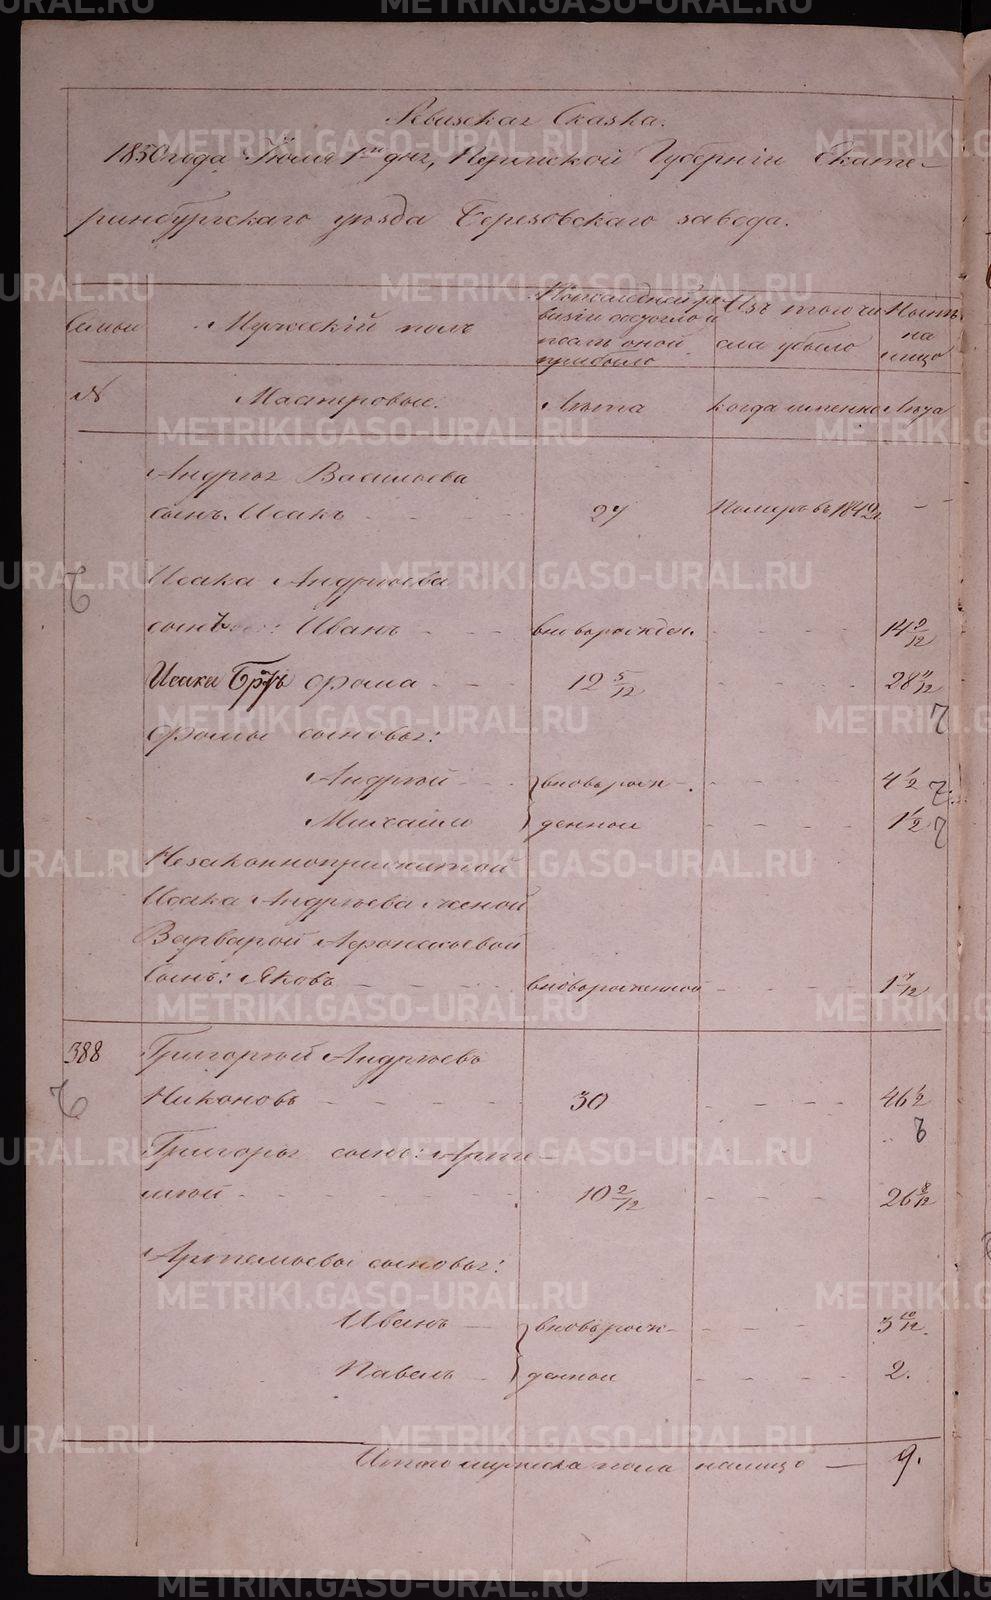 Ревизская Сказка.
1850 года Июля 1го дня, Пермской Губернiи Екате-
ринбургскаго уѣзда Березовскаго завода.
Семьи
Мужескiй полъ
По последней ре-
визiи состояло и
послѣ оной
прибыло
Изъ того чи
сла убыло
Нынѣ
на
лицо
№
Мастеровые.
Лѣта
когда именно
Лѣта
Андрея Васильева
сынъ: Исакъ 27 Померъ въ 1849 г. –
Исака Андрѣева
сынъ: Иванъ вновьрожден. 14 2/12
Исака Братъ Фома 12 5/12 28 11/12
Фомы сыновья:
Андрей вновьрож- 4 1/2
Михайло денныи 1 1/2
Незаконноприжитой
Исака Андрѣева женой
Варварой Афонасьевой
сынъ: Яковъ вновьрожденной 1 7/12
388 Григорiй Андрѣевъ
Никоновъ 30 46 1/2
Григорья сынъ: Арте-
мiй 10 2/12 26 8/12
Артемьевы сыновья:
Иванъ вновьрож- 3 10/12.
Павелъ денныи 2.
Итого мужеска пола налицо — 9.
METRIKI.GASO-URAL.RU